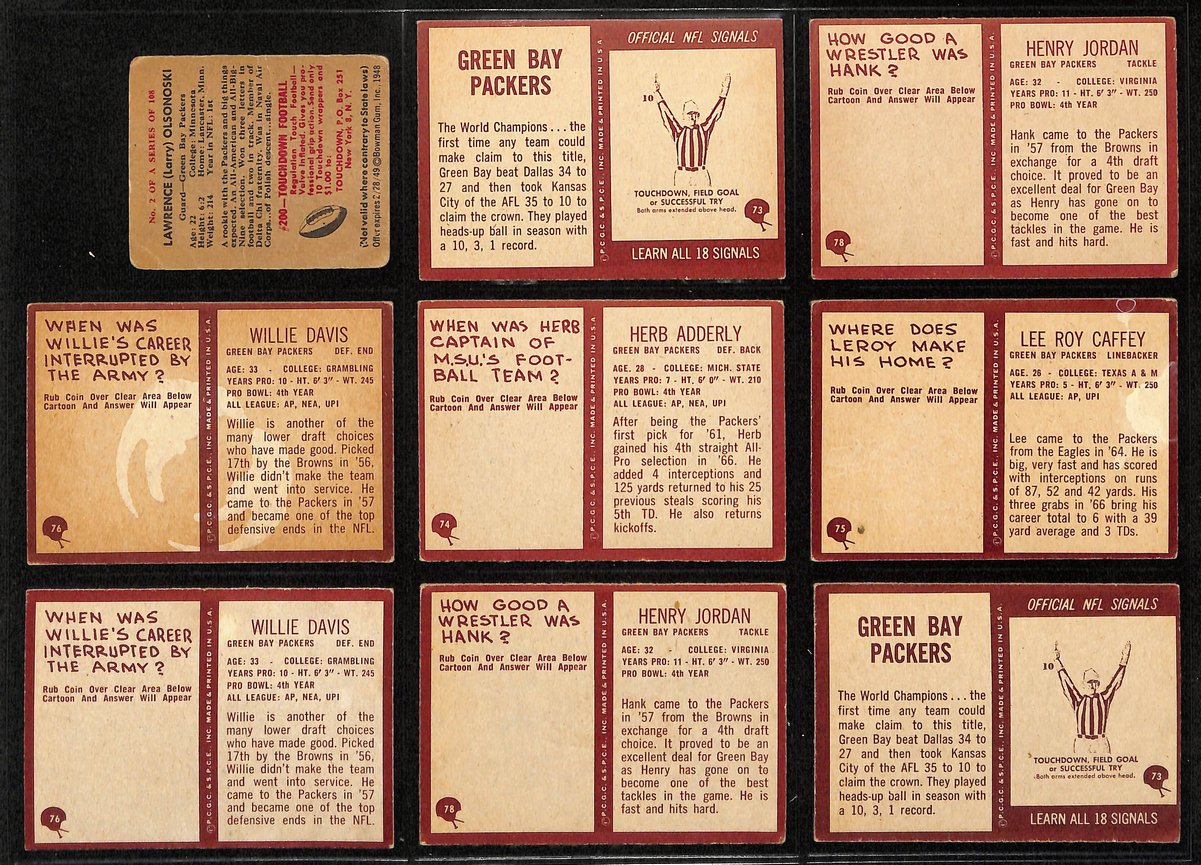 No. 2 OF A SERIES OF 108
LAWRENCE (Larry) OLSONOSKI
Guard—Green Bay Packers
Age: 22 College: Minnesota
Height: 6:2 Home: Lancaster, Minn.
Weight: 214 Year in NFL: 1st
A rookie with the Packers and big things
expected. An All-American and All-Big-
Nine selection. Won three letters in
football and two in track. Member of
Delta Chi fraternity. Was in Naval Air
Corps...of Polish descent...single.
#200—TOUCHDOWN FOOTBALL
Regulation Touch Football—
Valve Inflated. Gives you pro-
fessional grip action. Send only
10 Touchdown wrappers and
$1.00 to:
TOUCHDOWN, P.O. Box 251
New York 8, N. Y.
(Not valid where contrary to State laws)
Offer expires 2/28/49 ©Bowman Gum, Inc., 1948
GREEN BAY
PACKERS
The World Champions . . . the
first time any team could
make claim to this title,
Green Bay beat Dallas 34 to
27 and then took Kansas
City of the AFL 35 to 10 to
claim the crown. They played
heads-up ball in season with
a 10, 3, 1 record.
©P.C.G.C. & S.P.C.E., INC. MADE & PRINTED IN U.S.A.
OFFICIAL NFL SIGNALS
10
TOUCHDOWN, FIELD GOAL
or SUCCESSFUL TRY
Both arms extended above head.
73
LEARN ALL 18 SIGNALS
HOW GOOD A
WRESTLER WAS
HANK?
Rub Coin Over Clear Area Below
Cartoon And Answer Will Appear
78
©P.C.G.C. & S.P.C.E., INC. MADE & PRINTED IN U.S.A.
HENRY JORDAN
GREEN BAY PACKERS TACKLE
AGE: 32 - COLLEGE: VIRGINIA
YEARS PRO: 11 - HT. 6' 3" - WT. 250
PRO BOWL: 4th YEAR
Hank came to the Packers
in '57 from the Browns in
exchange for a 4th draft
choice. It proved to be an
excellent deal for Green Bay
as Henry has gone on to
become one of the best
tackles in the game. He is
fast and hits hard.
WHEN WAS
WILLIE'S CAREER
INTERRUPTED BY
THE ARMY?
Rub Coin Over Clear Area Below
Cartoon And Answer Will Appear
76
©P.C.G.C. & S.P.C.E., INC. MADE & PRINTED IN U.S.A.
WILLIE DAVIS
GREEN BAY PACKERS DEF. END
AGE: 33 - COLLEGE: GRAMBLING
YEARS PRO: 10 - HT. 6' 3" - WT. 245
PRO BOWL: 4th YEAR
ALL LEAGUE: AP, NEA, UPI
Willie is another of the
many lower draft choices
who have made good. Picked
17th by the Browns in '56,
Willie didn't make the team
and went into service. He
came to the Packers in '57
and became one of the top
defensive ends in the NFL.
WHEN WAS HERB
CAPTAIN OF
M.S.U.'S FOOT-
BALL TEAM?
Rub Coin Over Clear Area Below
Cartoon And Answer Will Appear
74
©P.C.G.C. & S.P.C.E., INC. MADE & PRINTED IN U.S.A.
HERB ADDERLY
GREEN BAY PACKERS DEF. BACK
AGE. 28 - COLLEGE: MICH. STATE
YEARS PRO: 7 - HT. 6' 0" - WT. 210
PRO BOWL: 4th YEAR
ALL LEAGUE: AP, NEA, UPI
After being the Packers'
first pick for '61, Herb
gained his 4th straight All-
Pro selection in '66. He
added 4 interceptions and
125 yards returned to his 25
previous steals scoring his
5th TD. He also returns
kickoffs.
WHERE DOES
LEROY MAKE
HIS HOME?
Rub Coin Over Clear Area Below
Cartoon And Answer Will Appear
75
©P.C.G.C. & S.P.C.E., INC. MADE & PRINTED IN U.S.A.
LEE ROY CAFFEY
GREEN BAY PACKERS LINEBACKER
AGE. 26 - COLLEGE: TEXAS A & M
YEARS PRO: 5 - HT. 6' 3" - WT. 250
ALL LEAGUE: AP, UPI
Lee came to the Packers
from the Eagles in '64. He is
big, very fast and has scored
with interceptions on runs
of 87, 52 and 42 yards. His
three grabs in '66 bring his
career total to 6 with a 39
yard average and 3 TDs.
WHEN WAS
WILLIE'S CAREER
INTERRUPTED BY
THE ARMY?
Rub Coin Over Clear Area Below
Cartoon And Answer Will Appear
76
©P.C.G.C. & S.P.C.E., INC. MADE & PRINTED IN U.S.A.
WILLIE DAVIS
GREEN BAY PACKERS DEF. END
AGE: 33 - COLLEGE: GRAMBLING
YEARS PRO: 10 - HT. 6' 3" - WT. 245
PRO BOWL: 4th YEAR
ALL LEAGUE: AP, NEA, UPI
Willie is another of the
many lower draft choices
who have made good. Picked
17th by the Browns in '56,
Willie didn't make the team
and went into service. He
came to the Packers in '57
and became one of the top
defensive ends in the NFL.
HOW GOOD A
WRESTLER WAS
HANK?
Rub Coin Over Clear Area Below
Cartoon And Answer Will Appear
78
©P.C.G.C. & S.P.C.E., INC. MADE & PRINTED IN U.S.A.
HENRY JORDAN
GREEN BAY PACKERS TACKLE
AGE: 32 - COLLEGE: VIRGINIA
YEARS PRO: 11 - HT. 6' 3" - WT. 250
PRO BOWL: 4th YEAR
Hank came to the Packers
in '57 from the Browns in
exchange for a 4th draft
choice. It proved to be an
excellent deal for Green Bay
as Henry has gone on to
become one of the best
tackles in the game. He is
fast and hits hard.
GREEN BAY
PACKERS
The World Champions . . . the
first time any team could
make claim to this title,
Green Bay beat Dallas 34 to
27 and then took Kansas
City of the AFL 35 to 10 to
claim the crown. They played
heads-up ball in season with
a 10, 3, 1 record.
©P.C.G.C. & S.P.C.E., INC. MADE & PRINTED IN U.S.A.
OFFICIAL NFL SIGNALS
10
TOUCHDOWN, FIELD GOAL
or SUCCESSFUL TRY
Both arms extended above head.
73
LEARN ALL 18 SIGNALS